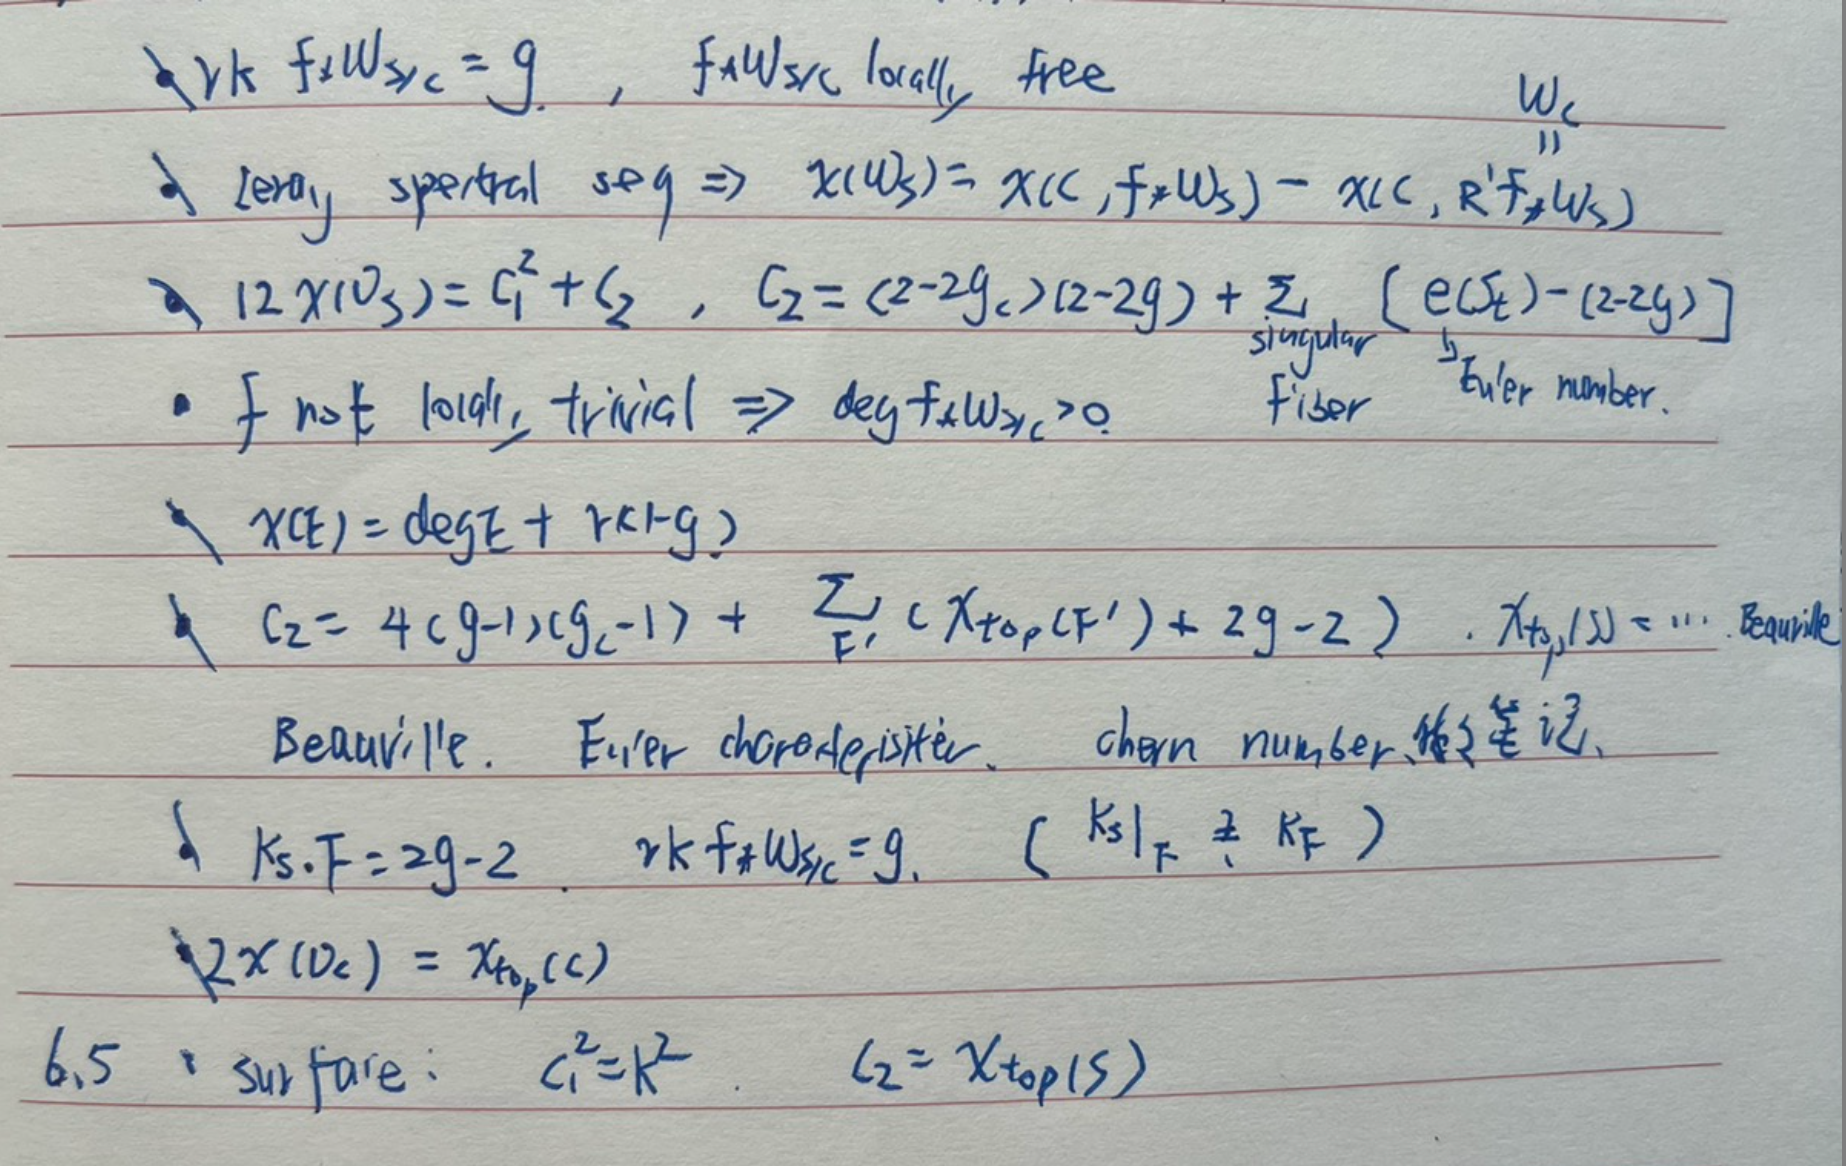 • rk f_*ω_{S/C} = g. , f_*ω_{S/C} locally free
ω_C
||
• Leray spectral seq ⇒ χ(ω_S) = χ(C, f_*ω_S) - χ(C, R¹f_*ω_S)
• 12χ(O_S) = c_1^2 + c_2 , c_2 = (2-2g_c)(2-2g) + Σ [e(S_t) - (2-2g)]
singular fiber
↳ Euler number.
• f not locally trivial ⇒ deg f_*ω_{S/C} > 0.
• χ(E) = deg E + rk(1-g)
• c_2 = 4(g-1)(g_c-1) + Σ_{F'} (χ_{top}(F') + 2g-2) . χ_{top}(S) = ... . Beauville
Beauville. Euler . chern number, 笔记.
• K_S.F = 2g-2 . rk f_*ω_{S/C} = g. ( K_S|_F K_F )
• 2χ(O_C) = χ_{top}(C)
6.5 • surface: c_1^2 = K^2 . c_2 = χ_{top}(S)